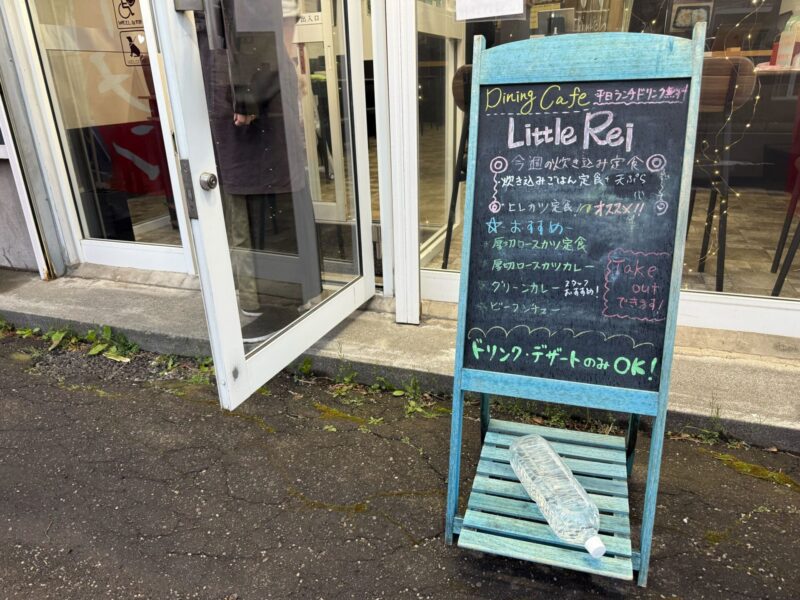 出入口
WELCOME
Dining Cafe
平日ランチドリンク無料!
Little Rei
今週の炊き込み定食
炊き込みごはん定食+天ぷら
ヒレカツ定食
オススメ!!
☆おすすめ~
・厚切ロースカツ定食
・厚切ロースカツカレー
・グリーンカレー
スタッフおすすめ!
・ビーフシチュー
Take out
できます!
ドリンク・デザートのみOK!